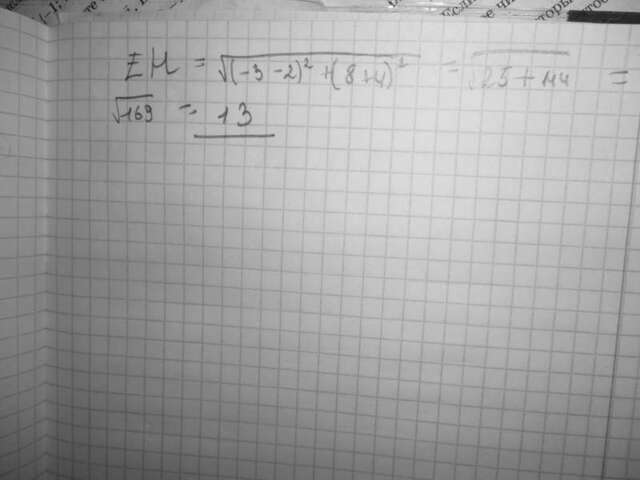 EH = √(-3-2)² + (8+4)² = √25 + 144 =
√169 = 13